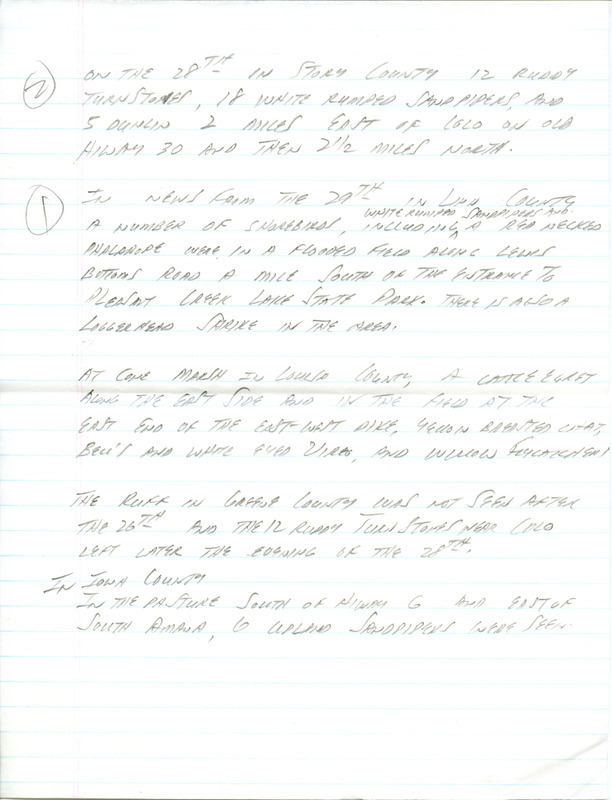 ② ON THE 28TH IN STORY COUNTY 12 RUDDY
TURNSTONES, 18 WHITE RUMPED SANDPIPERS, AND
5 DUNLIN 2 MILES EAST OF COLO ON OLD
HIWAY 30 AND THEN 2 1/2 MILES NORTH.
① IN NEWS FROM THE 29TH IN LINN COUNTY
WHITE RUMPED SANDPIPERS AND
A NUMBER OF SHOREBIRDS, INCLUDING ^ A RED NECKED
PHALAROPE WERE IN A FLOODED FIELD ALONG LEWIS
BOTTOMS ROAD A MILE SOUTH OF THE ENTRANCE TO
PLEASANT CREEK LAKE STATE PARK. THERE IS ALSO A
LOGGERHEAD SHRIKE IN THE AREA.
AT CONE MARSH IN LOUISA COUNTY, A CATTLE EGRET
ALONG THE EAST SIDE AND IN THE FIELD AT THE
EAST END OF THE EAST-WEST DIKE, YELLOW BREASTED CHAT,
BELL'S AND WHITE EYED VIREO, AND WILLOW FLYCATCHER
THE RUFF IN GREENE COUNTY WAS NOT SEEN AFTER
THE 26TH AND THE 12 RUDDY TURNSTONES NEAR COLO
LEFT LATER THE EVENING OF THE 28TH.
IN IOWA COUNTY
IN THE PASTURE SOUTH OF HIWAY 6 AND EAST OF
SOUTH AMANA, 6 UPLAND SANDPIPERS WERE SEEN.